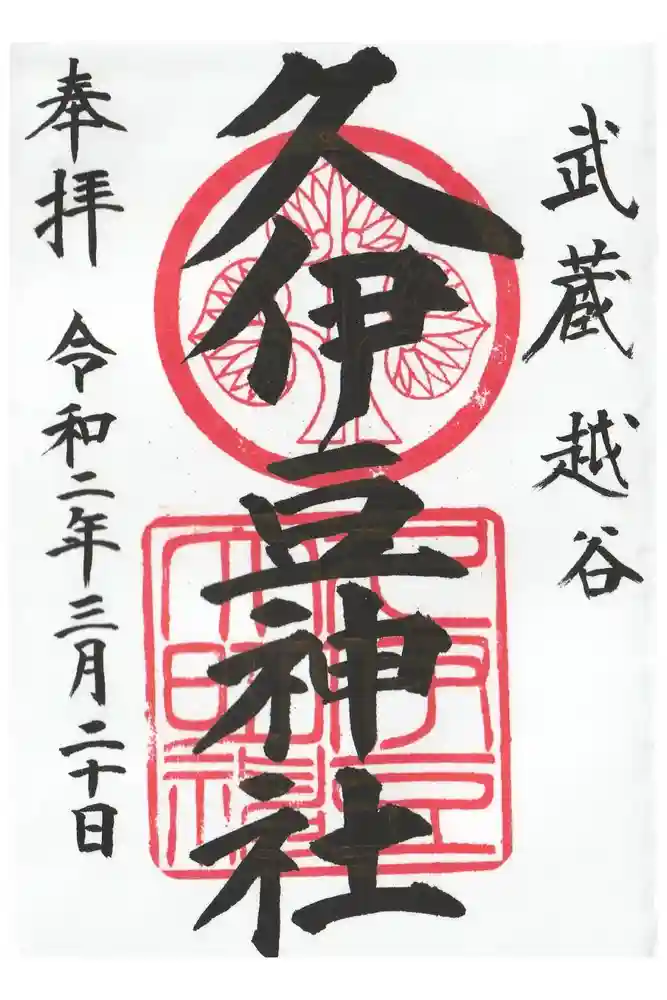 武蔵越谷
久伊豆神社
奉拝
令和二年三月二十日